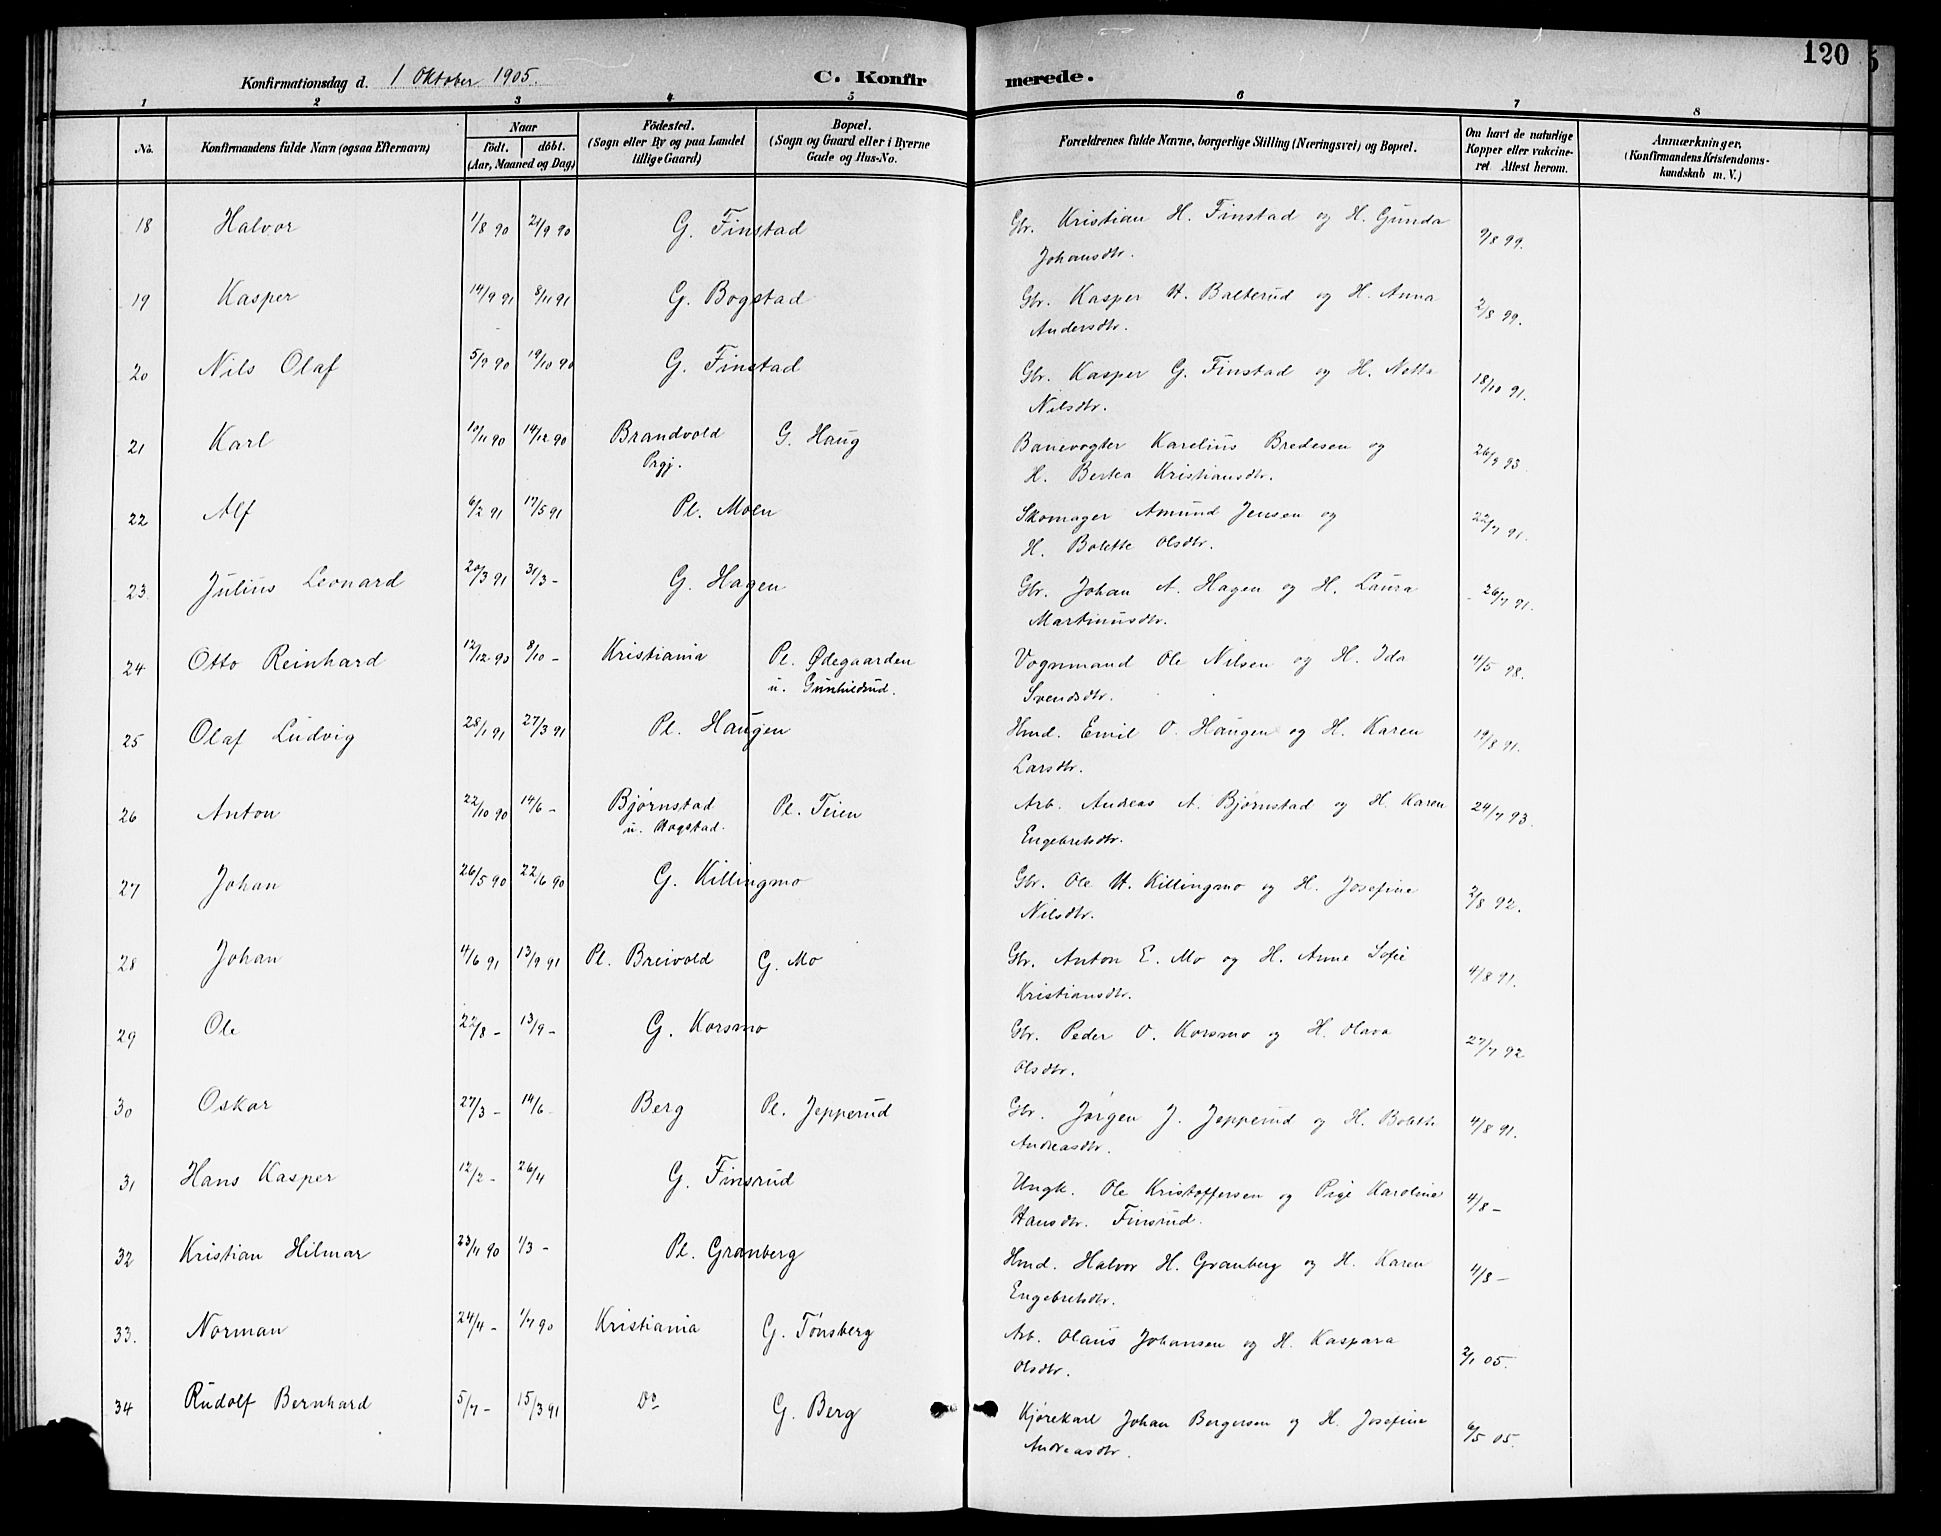 120
Konfirmationsdag d. 1 Oktober 1905. C. Konfirmerede.
1 2 3 4 5 6 7 8
No. Konfirmandens fulde Navn (ogsaa Efternavn) Naar födt. döbt. (Aar, Maaned og Dag) Födested. (Sogn eller By og paa Landet tillige Gaard) Bopæl. (Sogn og Gaard eller i Byerne Gade og Hus-No. Forældrenes fulde Navne, borgerlige Stilling (Næringsvei) og Bopæl. Om havt de naturlige Kopper eller vakcineret. Attest herom. Anmærkninger, (Konfirmandens Kristendomskundskab m. V.)
18 Halvor 1/8 90 21/9 90 G. Finstad Gbr. Kristian H. Finstad og H. Gunda 9/8 99.
Johansdtr.
19 Kasper 14/9 91 8/11 91 G. Bogstad Gbr. Kasper H. Balterud og H. Anna 2/8 99.
Andersdtr.
20 Nils Olaf 5/9 90 19/10 90 G. Finstad Gbr. Kasper G. Finstad og H. Netta 18/10 91.
Nilsdtr.
21 Karl 10/11 90 14/12 90 Brandvold G. Haug Banevogter Karelius Bredesen og 26/9 93.
Prgj. H. Bertea Kristiansdtr.
22 Alf 6/2 91 17/5 91 Pl. Moen Skomager Amund Jensen og 22/7 91.
H. Bolette Olsdtr.
23 Julius Leonard 20/3 91 31/3 - G. Hagen Gbr. Johan A. Hagen og H. Laura 26/7 91.
Martinusdtr.
24 Otto Reinhard 12/12 90 8/10 - Kristiania Pl. Ødegaarden Vognmand Ole Nilsen og H. Ida 4/5 98.
u. Gunhildrud. Svendsdtr.
25 Olaf Ludvig 28/1 91 27/3 91 Pl. Haugen Hmd. Emil O. Haugen og H. Karen 19/8 91.
Larsdtr.
26 Anton 22/10 90 14/6 - Bjørnstad Pl. Teien Arb. Andreas A. Bjørnstad og H. Karen 24/7 93.
u. Rogstad. Engebretsdtr.
27 Johan 26/5 90 22/6 90 G. Killingmo Gbr. Ole H. Killingmo og H. Josefine 2/8 92.
Nilsdtr.
28 Johan 4/6 91 13/9 91 Pl. Breivold G. Mo Gbr. Anton E. Mo og H. Anne Sofie 4/8 91.
Kristiansdtr.
29 Ole 22/8 - 13/9 - G. Korsmo Gbr. Peder O. Korsmo og H. Olava 27/7 92
Olsdtr.
30 Oskar 27/3 - 14/6 - Berg Pl. Jepperud Gbr. Jørgen J. Jepperud og H. Bolette 4/8 91.
Andreasdtr.
31 Hans Kasper 12/2 - 26/4 G. Finsrud Ungk. Ole Kristoffersen og Pige Karoline 4/8 -
Hansdtr. Finsrud.
32 Kristian Hilmar 23/11 90 1/3 - Pl. Granberg Hmd. Halvor H. Granberg og H. Karen 4/8 -
Engebretsdtr.
33. Norman 24/4 - 1/7 90 Kristiania G. Tønsberg Arb. Olaus Johansen og H. Kaspara 2/1 05.
Olsdtr.
34 Rudolf Bernhard 5/7 - 15/3 91 Do G. Berg Kjørekarl Johan Bergersen og H. Josefine 6/5 05.
Andreasdtr.